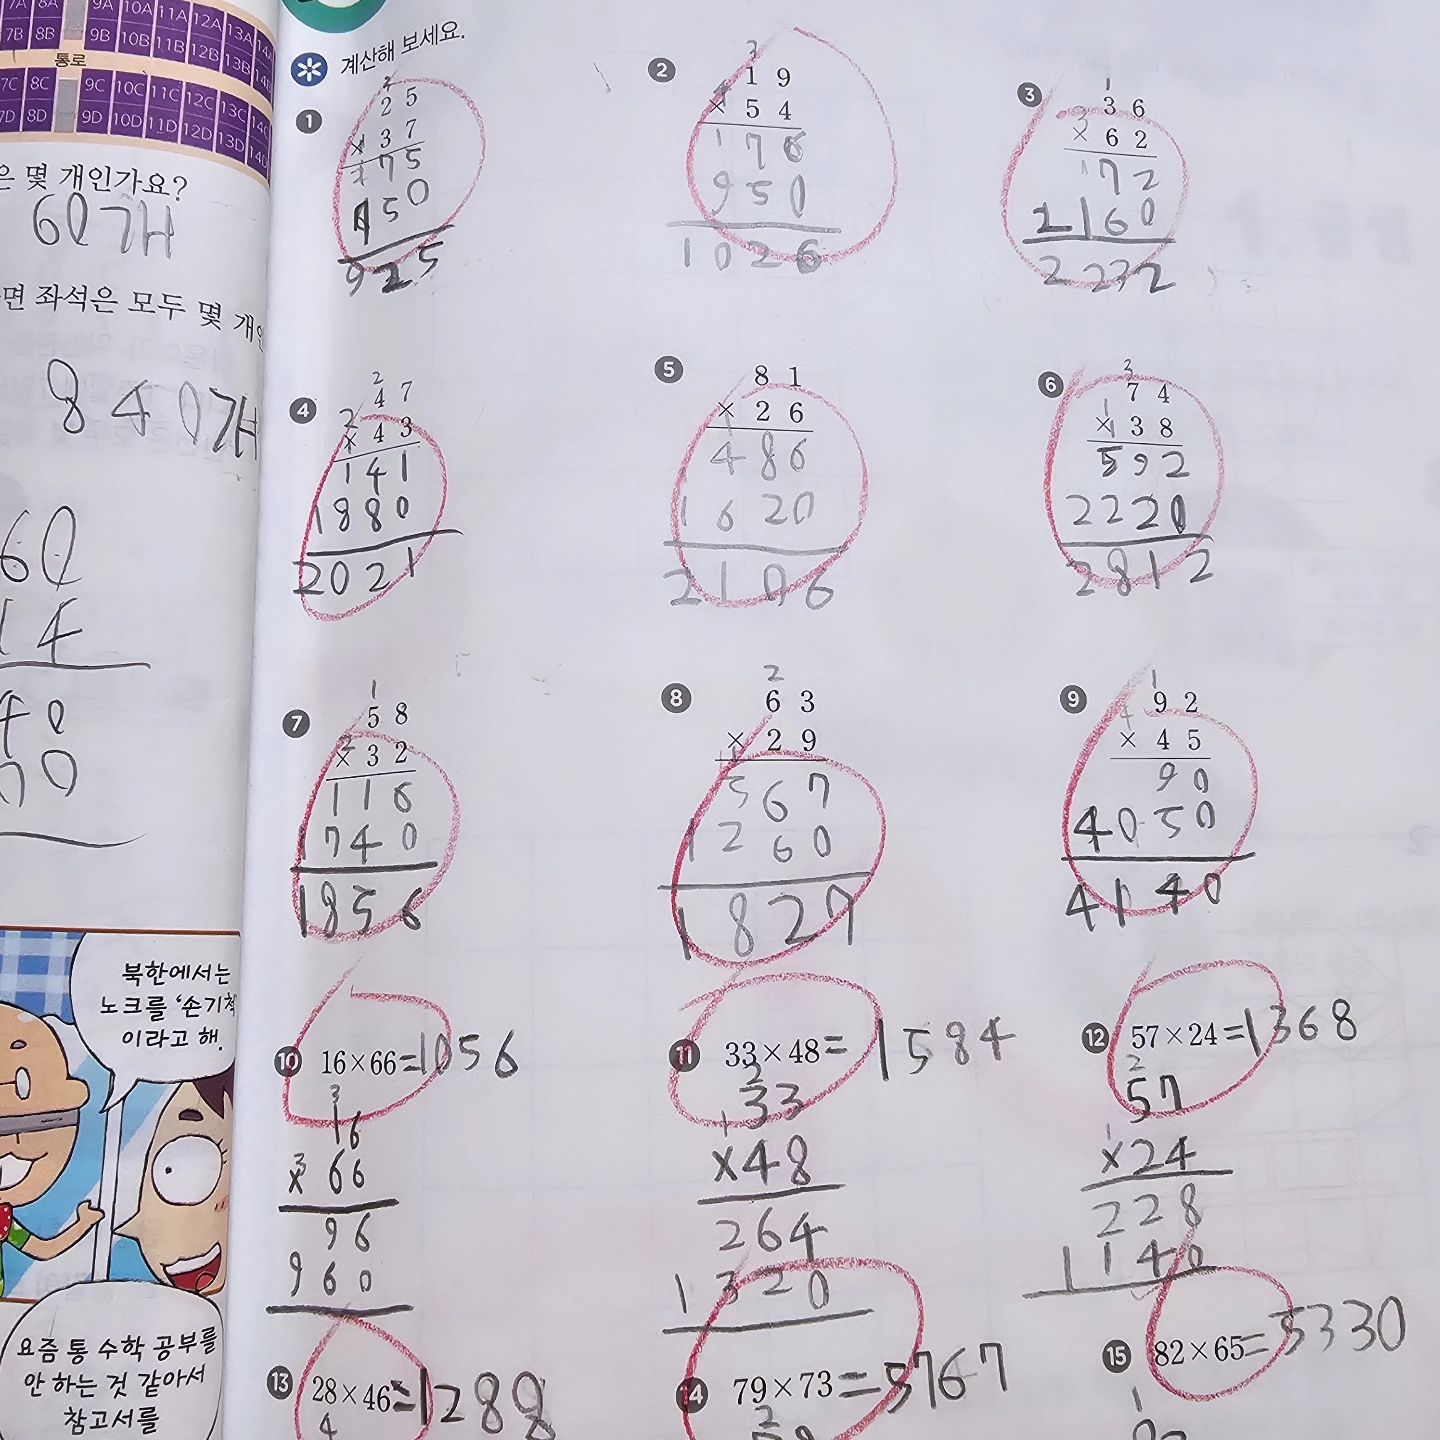 7A 8A 9A 10A 11A 12A 13A 14A
7B 8B 9B 10B 11B 12B 13B 14B
통로
7C 8C 9C 10C 11C 12C 13C 14C
7D 8D 9D 10D 11D 12D 13D 14D
은 몇 개인가요?
60개
면 좌석은 모두 몇 개인
840개
60
14
북한에서는
노크를 '손기척'
이라고 해.
요즘 통 수학 공부를
안 하는 것 같아서
참고서를
계산해 보세요.
1
2
25
× 37
175
750
925
2
3
19
× 54
176
950
1026
3
1
36
× 62
172
2160
2232
4
2
47
2
× 43
141
1880
2021
5
81
× 26
486
1620
2106
6
3
74
× 38
592
2220
2812
7
1
58
2
× 32
116
1740
1856
8
2
63
× 29
567
1260
1827
9
1
92
4
× 45
90
4050
4140
10 16×66=1056
3
16
3
× 66
96
960
11 33×48=1584
2
33
1
×48
264
1320
12 57×24=1368
2
57
1
×24
228
1140
13 28×46=1288
4
14 79×73=5767
2
15 82×65=5330
1